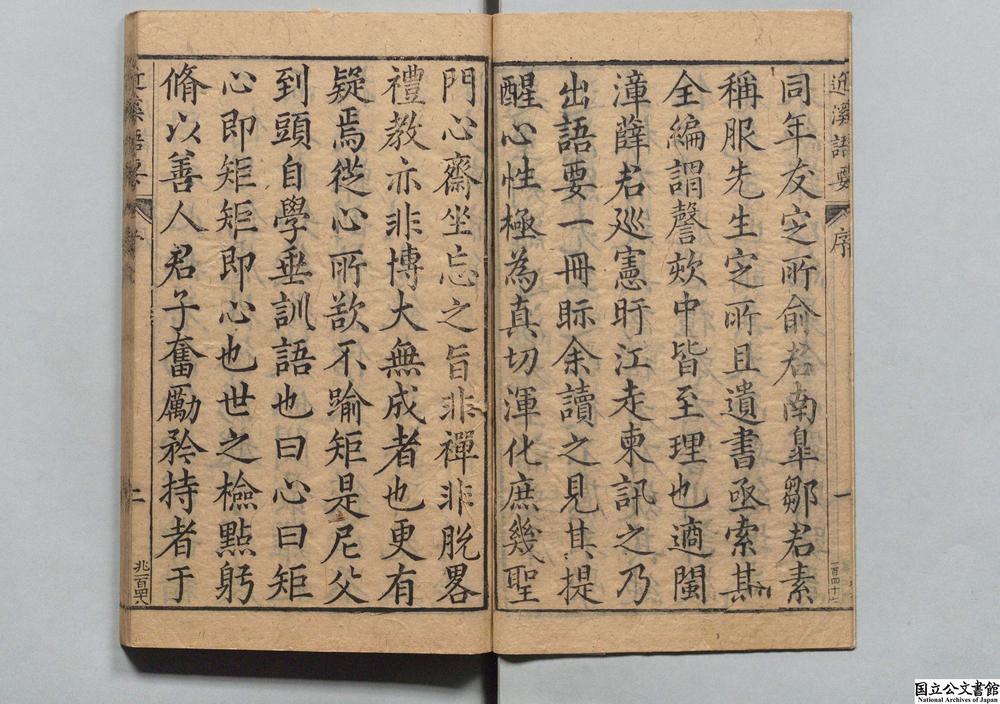 近溪語要 序 一 一百四十七
同年友定所俞君南臯鄒君素
稱服先生定所且遺書亟索其
全編謂謦欬中皆至理也適閩
漳薛君巡憲盱江走柬訊之乃
出語要一冊眎余讀之見其提
醒心性極為真切渾化庶幾聖
門心齋坐忘之旨非禪非脫畧
禮教亦非博大無成者也更有
疑焉從心所欲不踰矩是尼父
到頭自學垂訓語也曰心曰矩
心即矩矩即心也世之檢點躬
脩以善人君子奮勵矜持者于
近溪語要 二
国立公文書館
National Archives of Japan